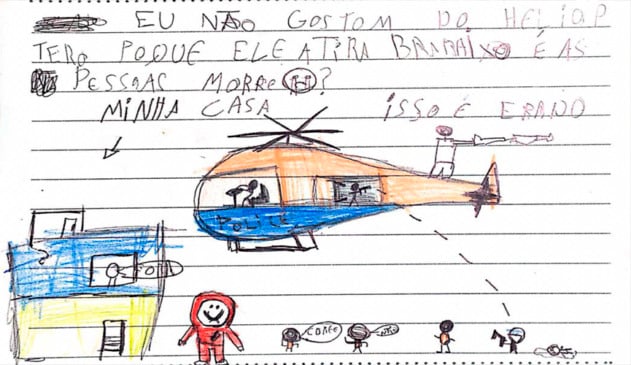 EU NÃO GOSTOM DO HELIOP
TERO POQUE ELE ATIRA BRAAIXO É AS
PESSOAS MORRE?
MINHA CASA
ISSO É ERADO
POLICE
CORRE